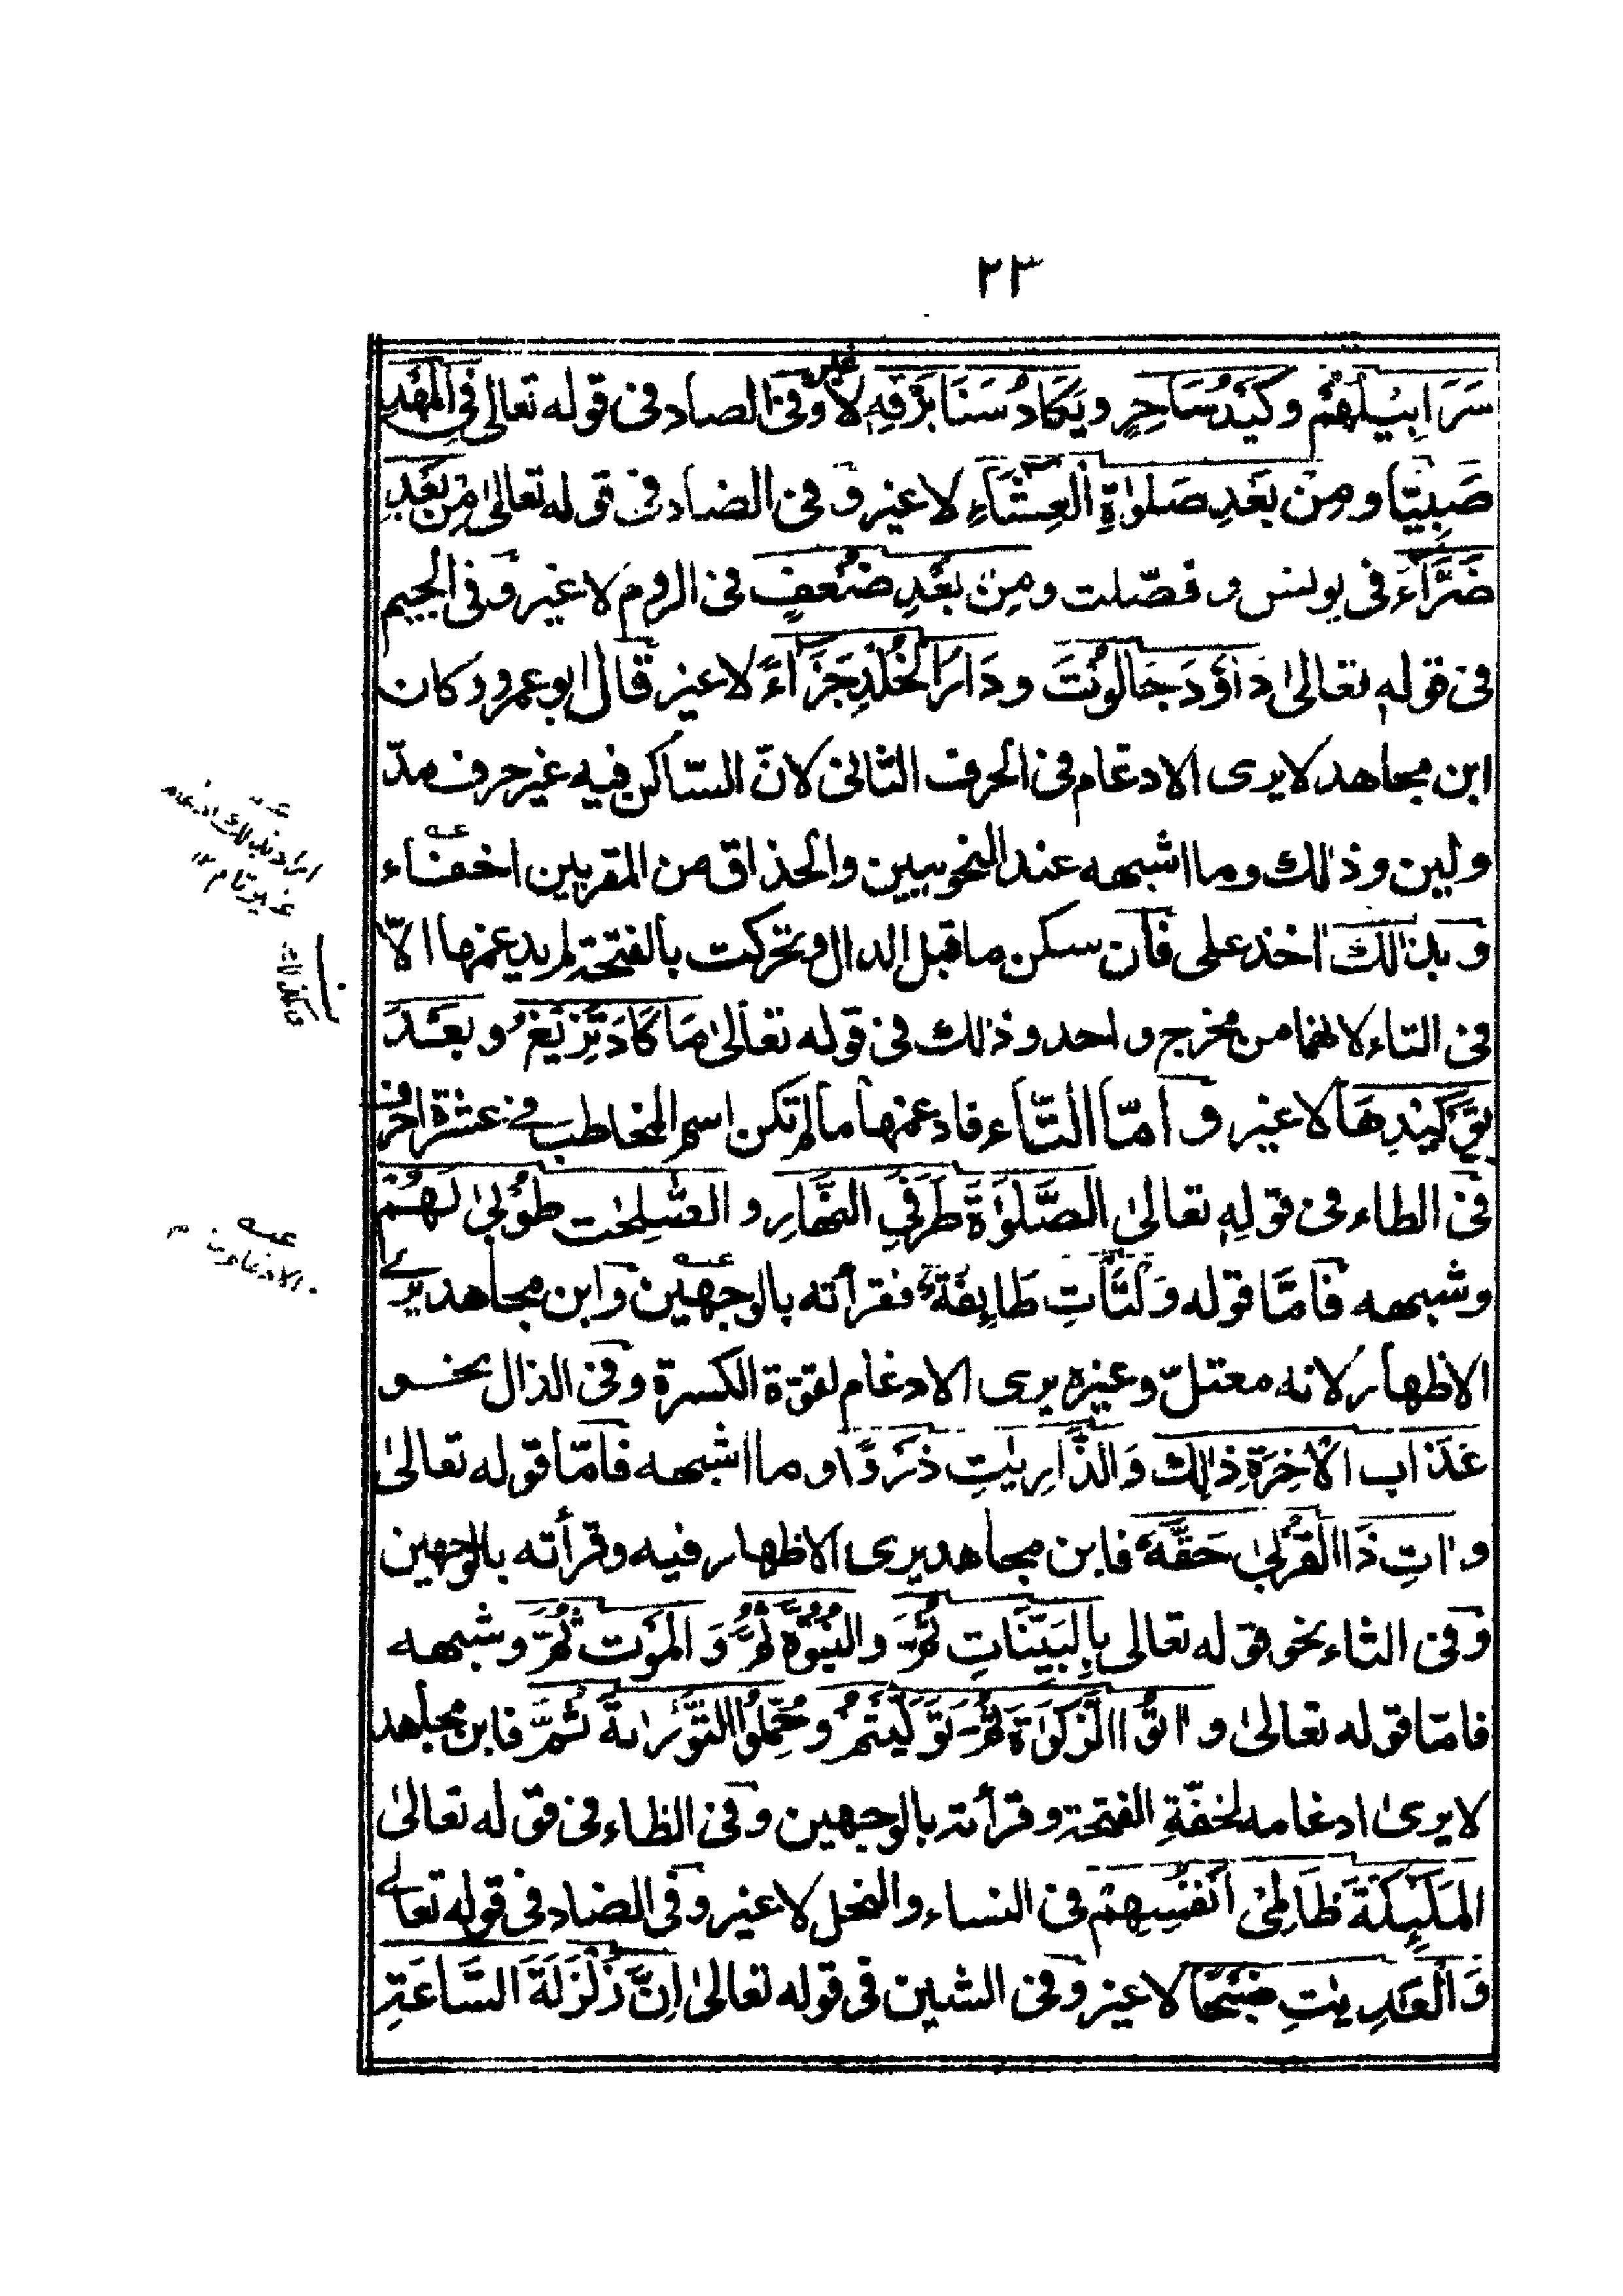 ٢٣
سَرَابِيلُهُمْ وكَيْدُ سَاحِرٍ ويَكَادُ سَنَا بَرْقِهٖ لا غير وفى الصاد فى قوله تعالى فِى الْمَهْدِ
صَبِيًّا ومِنْ بَعْدِ صَلوٰةِ الْعِشَآءِ لا غير وفى الضاد فى قوله تعالىٰ مِنْ بَعْدِ
ضَرَّآءَ فى يونس و فصّلت ومِنْ بَعْدِ ضُعْفٍ فى الروم لا غير وفى الجيم
فى قولهٖ تعالىٰ دَاوٗدَ جَالُوْتَ ودَارُ الْخُلْدِ جَزَآءً لا غير قال ابو عمرو وكان
ابن مجاهد لا يرى الادغام فى الحرف الثانى لانّ السّاكن فيه غير حرف مدّ
ولين وذٰلك وما اشبهه عند النحويين والحذاق من المقريين اخفاء
وبذٰلك اخذ على فان سكن ما قبل الدال وتحركت بالفتحة لم يدغمها الّا
فى التاء لانهما من مخرج واحد وذٰلك فى قوله تعالىٰ مَا كَادَ تَزِيْغُ وبَعْدَ
تَوْكِيْدِهَا لا غير وامّا التّاء فادغمها ما لم تكن اسم المخاطب فى عشرة احرف
فى الطاء فى قولهٖ تعالىٰ الصَّلوٰةَ طَرَفَيِ النَّهَارِ و الصّٰلِحٰتِ طُوْبىٰ لَهُمْ
وشبهه فامّا قوله وَلْتَأْتِ طَآئِفَةٌ فقرأته بالوجهين وابن مجاهد يرى
الاظهار لانه معتلّ وغيره يرى الادغام لقوّة الكسرة وفى الذال نحو
عَذَابَ الْاٰخِرَةِ ذٰلِكَ وَالذّٰارِيٰتِ ذَرْوًا وما اشبهه فامّا قوله تعالىٰ
وَاٰتِ ذَا الْقُرْبىٰ حَقَّهٗ فابن مجاهد يرى الاظهار فيه وقرأته بالوجهين
وفى الثاء نحو قوله تعالى بِالْبَيِّنَاتِ ثُمَّ والنُّبُوَّةَ ثُمَّ وَ الْمَوْتِ ثُمَّ وشبهه
فامّا قوله تعالىٰ و اٰتُوا الزَّكوٰةَ ثُمَّ تَوَلَّيْتُمْ وحُمِّلُوا التَّوْرٰىةَ ثُمَّ فابن مجاهد
لا يرىٰ ادغامه لخفّةِ الفتحة وقرأته بالوجهين وفى الظاء فى قوله تعالىٰ
الْمَلٰٓئِكَةُ ظَالِمِىْ اَنْفُسِهِمْ فى النساء والنحل لا غير وفى الضاد فى قوله تعالىٰ
وَالْعٰدِيٰتِ ضَبْحًا لا غير وفى الشين فى قوله تعالىٰ اِنَّ زَلْزَلَةَ السَّاعَةِ
اراد بذلك ادغام
غير تام ١٢